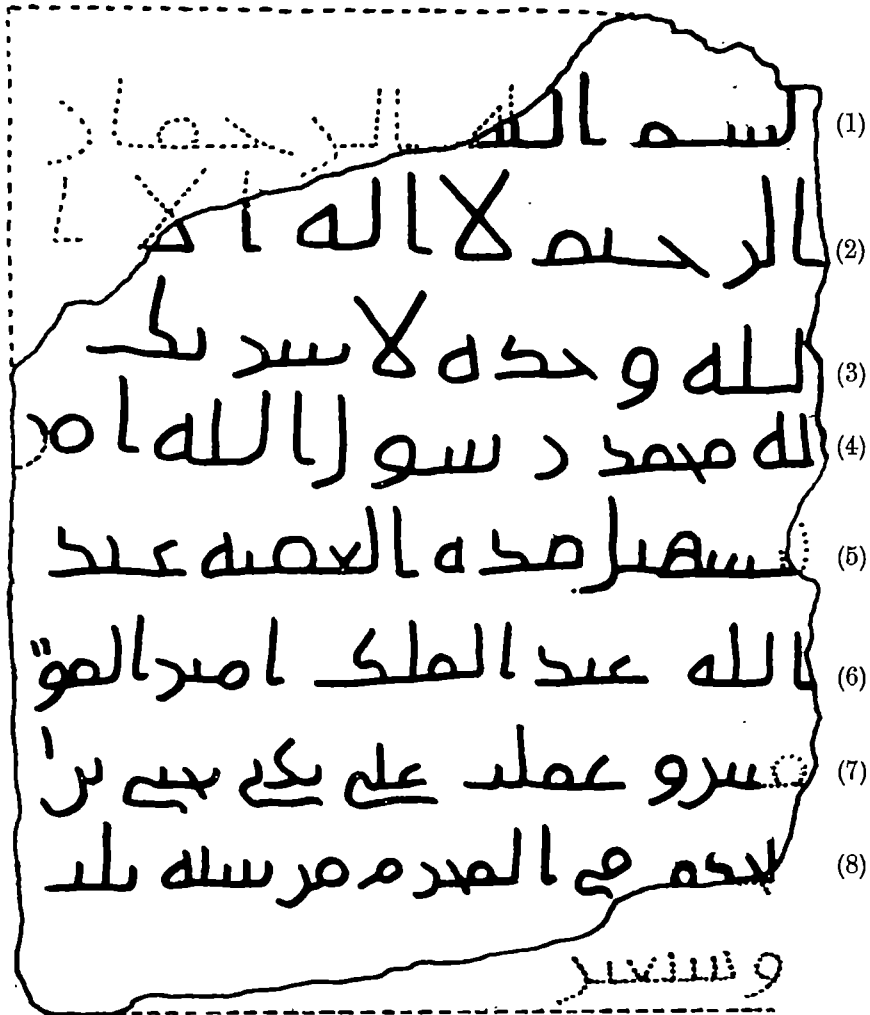 (1) بسم الله الرحمن
(2) الرحيم لا اله الا ا
(3) لله وحده لا شريك
(4) له محمد رسول الله امر
(5) بتسهيل هذه العقبه عبد
(6) الله عبد الملك امير المؤ
(7) منين وعملت علي يدي يحيى بن ا
(8) لحكم في المحرم من سنه ثلث
وسبعين